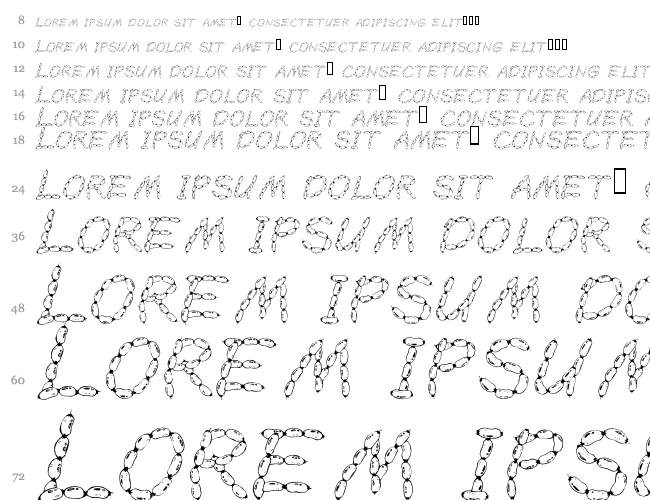 8 LOREM IPSUM DOLOR SIT AMET▯ CONSECTETUER ADIPISCING ELIT▯▯▯
10 LOREM IPSUM DOLOR SIT AMET▯ CONSECTETUER ADIPISCING ELIT▯▯▯
12 LOREM IPSUM DOLOR SIT AMET▯ CONSECTETUER ADIPISCING ELIT
14 LOREM IPSUM DOLOR SIT AMET▯ CONSECTETUER ADIPIS
16 LOREM IPSUM DOLOR SIT AMET▯ CONSECTETUER A
18 LOREM IPSUM DOLOR SIT AMET▯ CONSECTET
24 LOREM IPSUM DOLOR SIT AMET▯
36 LOREM IPSUM DOLOR S
48 LOREM IPSUM DO
60 LOREM IPSUM
72 LOREM IPS